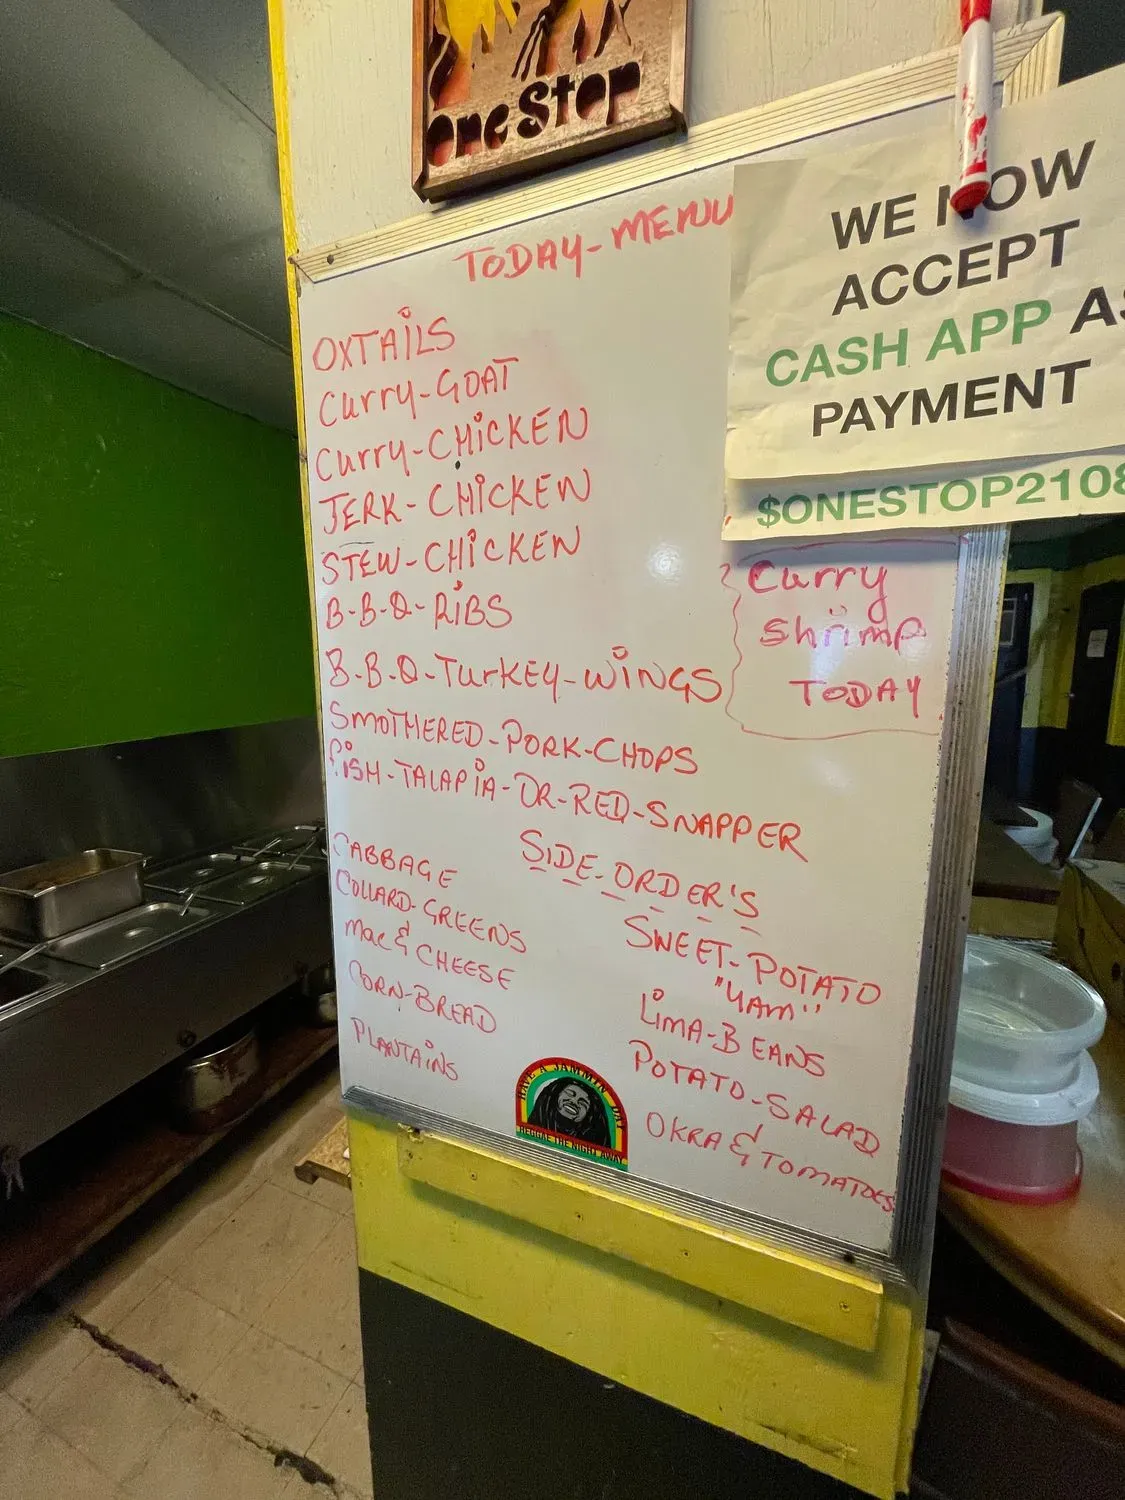 One Stop
TODAY-MENU
OXTAiLS
Curry-GOAT
Curry-CHiCKEN
JERK-CHiCKEN
STEW-CHiCKEN
B-B-Q-RiBS
B.B.Q-TurKEY-WiNGS
SMOTHERED-PORK-CHOPS
fiSH-TALAPiA-OR-RED-SNAPPER
WE NOW
ACCEPT
CASH APP AS
PAYMENT
$ONESTOP2108
Curry
Shrimp
TODAY
SIDE-ORDER'S
CABBAGE
COLLARD-GREENS
Mac & CHEESE
CORN-BREAD
PLANTAiNS
SWEET-POTATO
"YAM"
LiMA-BEANS
POTATO-SALAD
OKRA & TOMATOES
HAVE A JAMMIN' DAY
REGGAE THE NIGHT AWAY